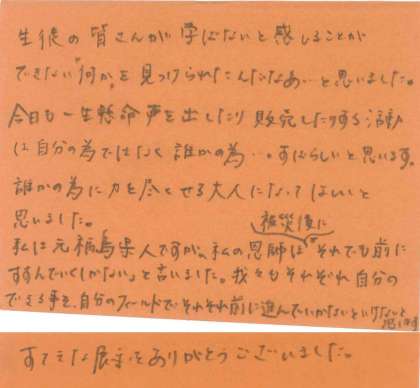 生徒の皆さんが学ばないと感じることが
できない"何か"を見つけられたんだなあ…と思いました。
今日も一生懸命声を出したり販売したりする活動
は自分の為ではなく誰かの為…。すばらしいと思います。
誰かの為に力を尽くせる大人になってほしいと
思いました。
被災後に
私は元福島県人ですが、私の恩師は"それでも前に
すすんでいくしかない"と言いました。我々もそれぞれ自分の
できる事を、自分のフィールドでそれぞれ前に進んでいかないといけないと
思います
すてきな展示をありがとうございました。